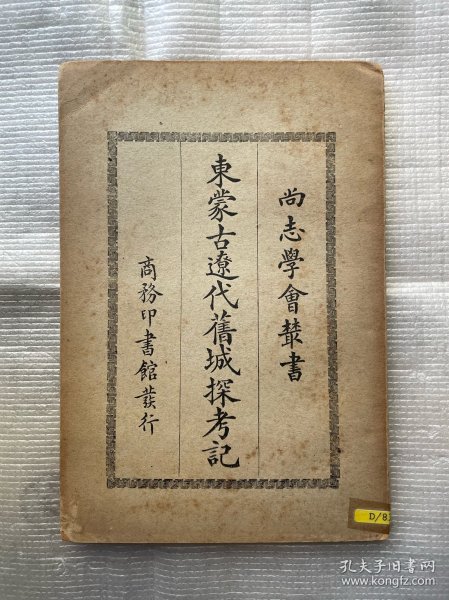 尚志學會叢書
東蒙古遼代舊城探考記
商務印書館發行
D/8
孔夫子旧书网
www.kongfz.com